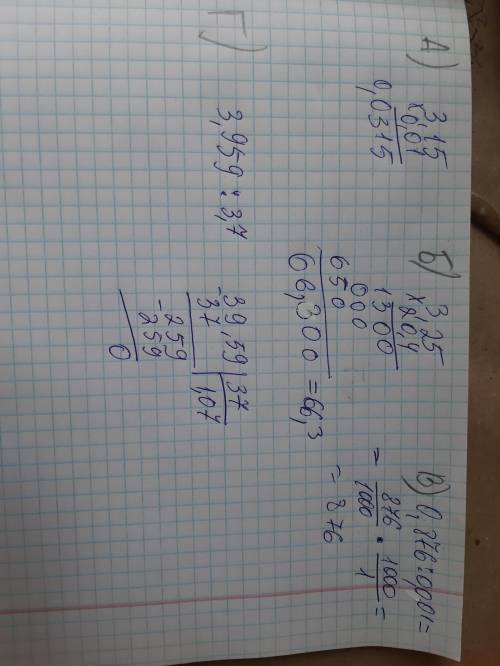 А)
3,15
×0,01
0,0315
Б)
3,25
×20,4
1300
000
650
66,300 = 66,3
В) 0,876:0,001=
= 876/1000 · 1000/1 =
= 876
Г)
3,959 : 3,7
-39,59|37
37 1,07
-259
259
0